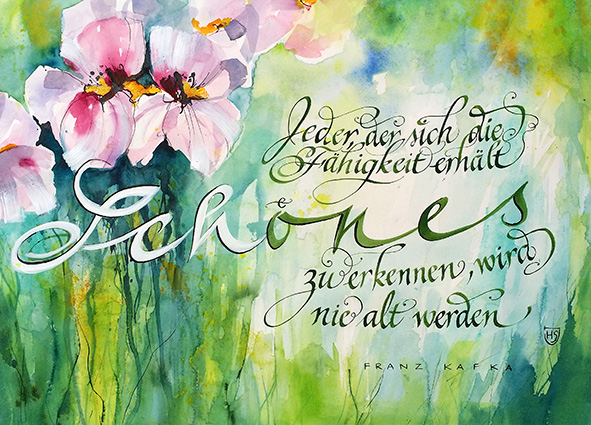 Jeder, der sich die
Fähigkeit erhält
Schönes
zu erkennen, wird
nie alt werden
FRANZ KAFKA
HS